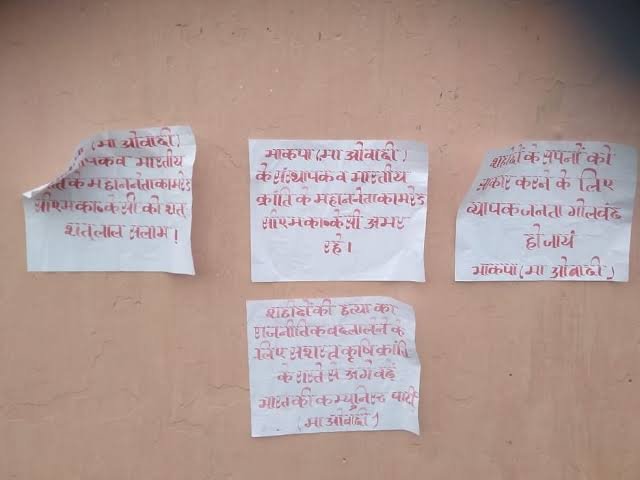 (माओवादी)
पकव भारतीय
के महाननेताकामरेड
सीएमकाॅ०केसी को शत्
शत्लाल सलाम!
भाकपा(माओवादी)
के संस्थापकव भारतीय
क्रांति के महाननेताकामरेड
सीएमकाॅ०केसी अमर
रहे।
शहीदों के सपनों को
साकार करने के लिए
व्यापकजनता गोलबंद
होजायं
भाकपा(माओवादी)
शहीदोंकी हत्या का
राजनीतिकबदलालेने के
लिए सशस्त्र कृषि क्रांति
के रास्ते से आगेबढ़ें
भारतकी कम्युनिस्ट पार्टी
(माओवादी)